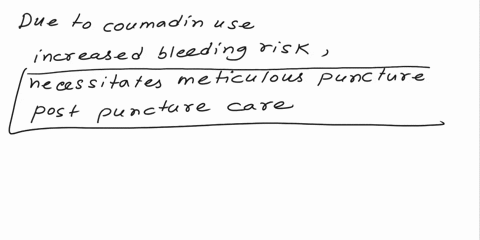 Due to coumadin use
increased bleeding risk,
necessitates meticulous puncture
post puncture care